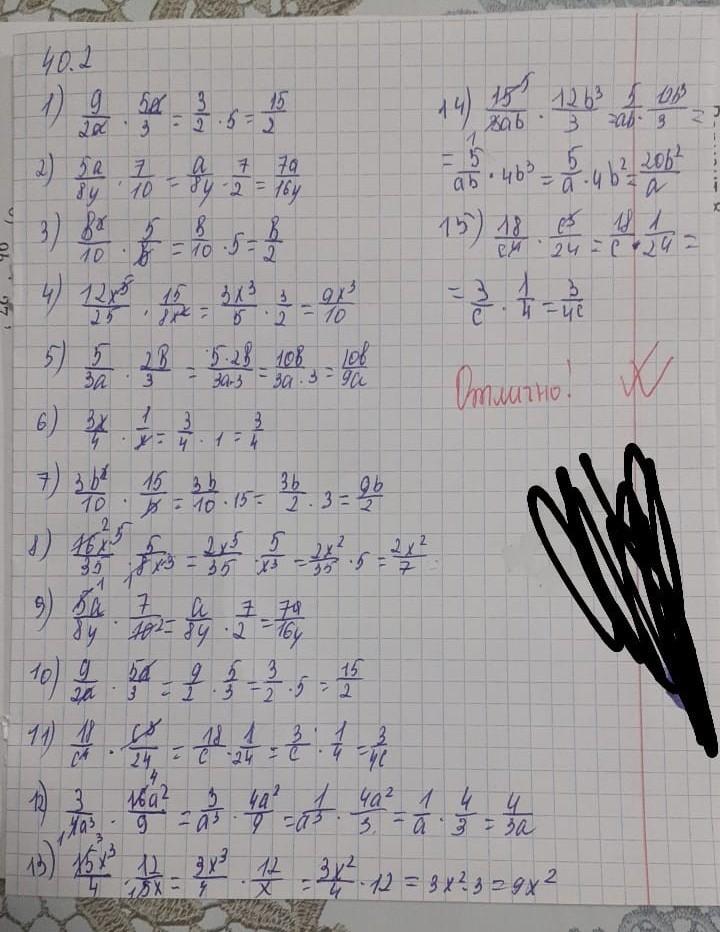 40.2
1) 9/2a · 5a/3 = 3/2 · 5 = 15/2
2) 5a/8y · 7/10 = a/8y · 7/2 = 7a/16y
3) b²/10 · 5/b = b/10 · 5 = b/2
4) 12x⁵/25 · 15/8x² = 3x³/5 · 3/2 = 9x³/10
5) 5/3a · 2b/3 = 5·2b/3a·3 = 10b/3a·3 = 10b/9a
6) 3x/4 · 1/x = 3/4 · 1 = 3/4
7) 3b²/10 · 15/b = 3b/10 · 15 = 3b/2 · 3 = 9b/2
8) 16x⁵/35 · 5/8x³ = 2x⁵/35 · 5/x³ = 2x²/35 · 5 = 2x²/7
9) 5a/8y · 7/10 = a/8y · 7/2 = 7a/16y
10) 9/2a · 5a/3 = 9/2 · 5/3 = 3/2 · 5 = 15/2
11) 18/c⁴ · c³/24 = 18/c · 1/24 = 3/c · 1/4 = 3/4c
12) 3/4a³ · 16a²/9 = 3/a³ · 4a²/9 = 1/a³ · 4a²/3 = 1/a · 4/3 = 4/3a
13) 15x³/4 · 12/5x = 3x³/4 · 12/x = 3x²/4 · 12 = 3x²·3 = 9x²
14) 15/3ab · 12b³/3 = 5/ab · 12b³/3 =
= 5/ab · 4b³ = 5/a · 4b² = 20b²/a
15) 18/c⁴ · c³/24 = 18/c · 1/24 =
= 3/c · 1/4 = 3/4c
Отлично!